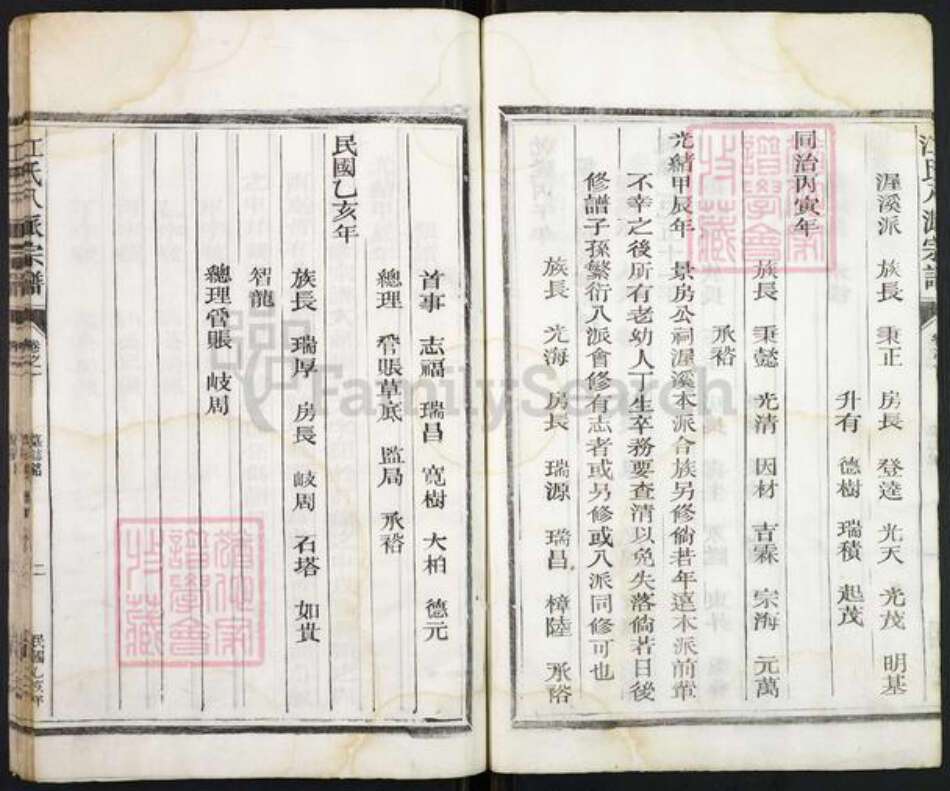 渥溪派 族長 秉正 房長 登逵 光天 光茂 明基
升有 德樹 瑞積 起茂
同治丙寅年
族長 秉懿 光清 因材 吉霖 宗海 元萬
承裕
光緒甲辰年 景房公祠渥溪本派合族另修倘若年遠本派前輩
不幸之後所有老幼人丁生卒務要查清以免失落倘若日後
修譜子孫繁衍八派會修有志者或另修或八派同修可也
族長 光海 房長 瑞源 瑞昌 樟陸 承裕
首事 志福 瑞昌 寬樹 大柏 德元
總理 管賬草底 監局 承裕
民國乙亥年
族長 瑞厚 房長 岐周 石塔 如貴
智龍
總理管賬 岐周
江氏八派宗譜 卷之一 二 民國乙亥年
FamilySearch
譜學會
收藏